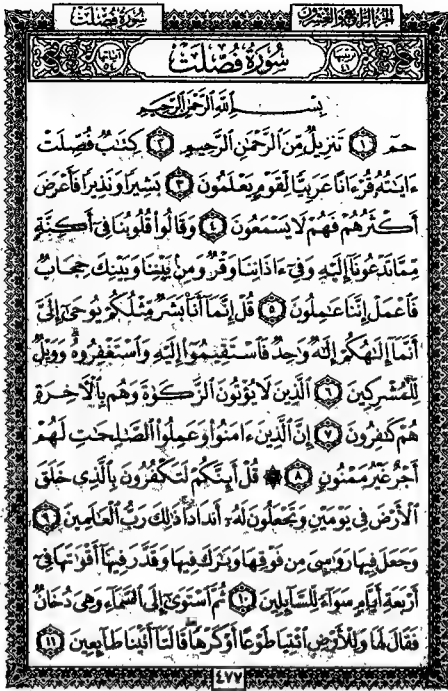 سُورَةُ فُصِّلَتْ
الجزء الرابع والعشرون
ترتيبها ٤١
سُورَةُ فُصِّلَتْ
آياتها ٥٤
بِسْمِ ٱللَّهِ ٱلرَّحْمَٰنِ ٱلرَّحِيمِ
حمٓ ١ تَنزِيلٌ مِّنَ ٱلرَّحْمَٰنِ ٱلرَّحِيمِ ٢ كِتَٰبٌ فُصِّلَتْ
ءَايَٰتُهُۥ قُرْءَانًا عَرَبِيًّا لِّقَوْمٍ يَعْلَمُونَ ٣ بَشِيرًا وَنَذِيرًا فَأَعْرَضَ
أَكْثَرُهُمْ فَهُمْ لَا يَسْمَعُونَ ٤ وَقَالُوا۟ قُلُوبُنَا فِىٓ أَكِنَّةٍ
مِّمَّا تَدْعُونَآ إِلَيْهِ وَفِىٓ ءَاذَانِنَا وَقْرٌ وَمِنۢ بَيْنِنَا وَبَيْنِكَ حِجَابٌ
فَٱعْمَلْ إِنَّنَا عَٰمِلُونَ ٥ قُلْ إِنَّمَآ أَنَا۠ بَشَرٌ مِّثْلُكُمْ يُوحَىٰٓ إِلَىَّ
أَنَّمَآ إِلَٰهُكُمْ إِلَٰهٌ وَٰحِدٌ فَٱسْتَقِيمُوٓا۟ إِلَيْهِ وَٱسْتَغْفِرُوهُ وَوَيْلٌ
لِّلْمُشْرِكِينَ ٦ ٱلَّذِينَ لَا يُؤْتُونَ ٱلزَّكَوٰةَ وَهُم بِٱلْءَاخِرَةِ
هُمْ كَٰفِرُونَ ٧ إِنَّ ٱلَّذِينَ ءَامَنُوا۟ وَعَمِلُوا۟ ٱلصَّٰلِحَٰتِ لَهُمْ
أَجْرٌ غَيْرُ مَمْنُونٍ ٨ ۞ قُلْ أَئِنَّكُمْ لَتَكْفُرُونَ بِٱلَّذِى خَلَقَ
ٱلْأَرْضَ فِى يَوْمَيْنِ وَتَجْعَلُونَ لَهُۥٓ أَندَادًا ذَٰلِكَ رَبُّ ٱلْعَٰلَمِينَ ٩
وَجَعَلَ فِيهَا رَوَٰسِىَ مِن فَوْقِهَا وَبَٰرَكَ فِيهَا وَقَدَّرَ فِيهَآ أَقْوَٰتَهَا فِىٓ
أَرْبَعَةِ أَيَّامٍ سَوَآءً لِّلسَّآئِلِينَ ١٠ ثُمَّ ٱسْتَوَىٰٓ إِلَى ٱلسَّمَآءِ وَهِىَ دُخَانٌ
فَقَالَ لَهَا وَلِلْأَرْضِ ٱئْتِيَا طَوْعًا أَوْ كَرْهًا قَالَتَآ أَتَيْنَا طَآئِعِينَ ١١
٤٧٧